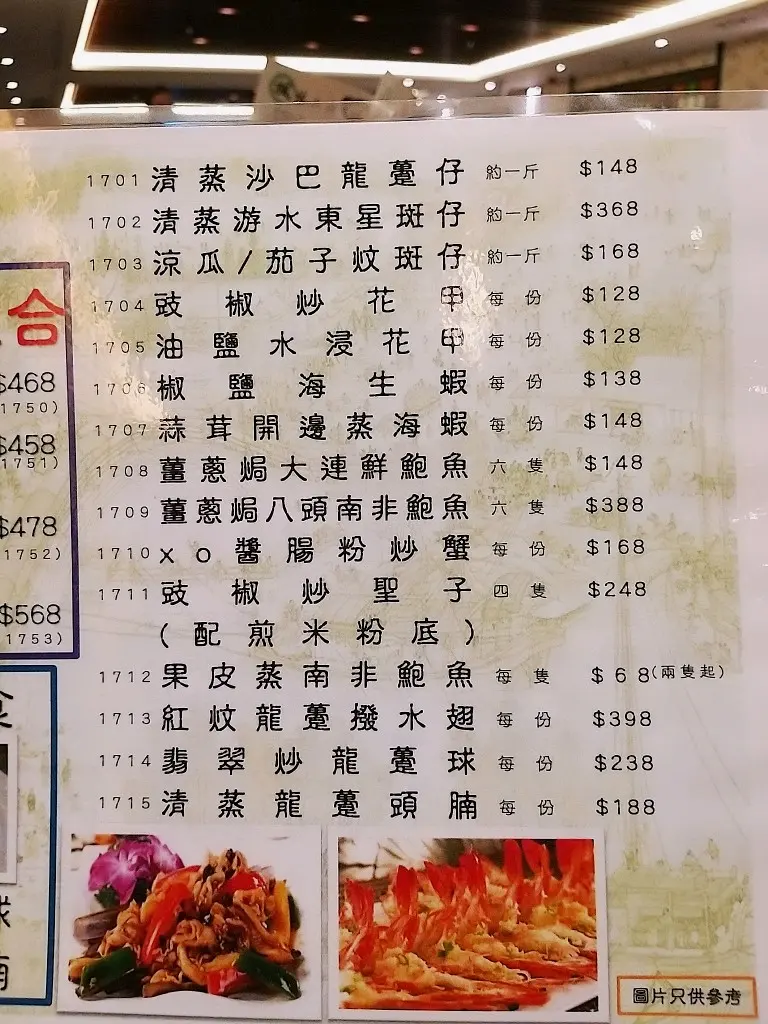 合
$468
1750)
$458
1751)
$478
(1752)
$568
(1753)
1701 清蒸沙巴龍躉仔 約一斤 $148
1702 清蒸游水東星斑仔 約一斤 $368
1703 涼瓜/茄子炆斑仔 約一斤 $168
1704 豉椒炒花甲 每份 $128
1705 油鹽水浸花甲 每份 $128
1706 椒鹽海生蝦 每份 $138
1707 蒜茸開邊蒸海蝦 每份 $148
1708 薑蔥焗大連鮮鮑魚 六隻 $148
1709 薑蔥焗八頭南非鮑魚 六隻 $388
1710 xo醬腸粉炒蟹 每份 $168
1711 豉椒炒聖子 四隻 $248
(配煎米粉底)
1712 果皮蒸南非鮑魚 每隻 $68(兩隻起)
1713 紅炆龍躉撥水翅 每份 $398
1714 翡翠炒龍躉球 每份 $238
1715 清蒸龍躉頭腩 每份 $188
圖片只供參考